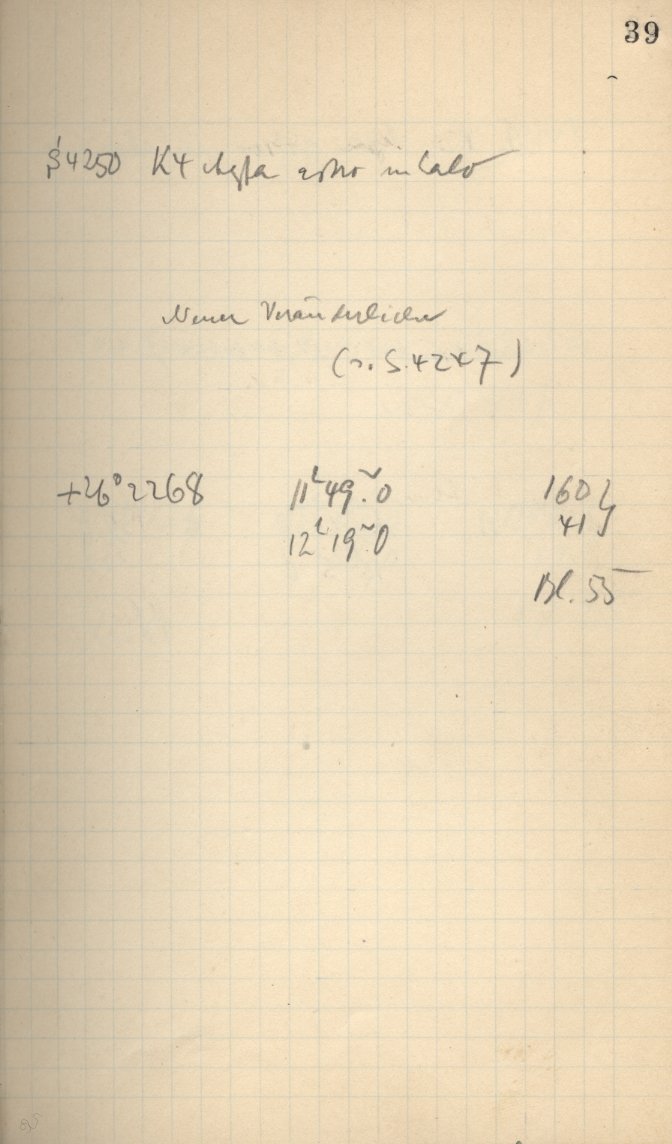 39
S4250 K4 Agfa astro unlabo
Neuer Veränderlicher
(s. S.4247)
+26°2268 11ʰ49ᵐ.0 160}
12ʰ19ᵐ.0 41}
Bl. 55